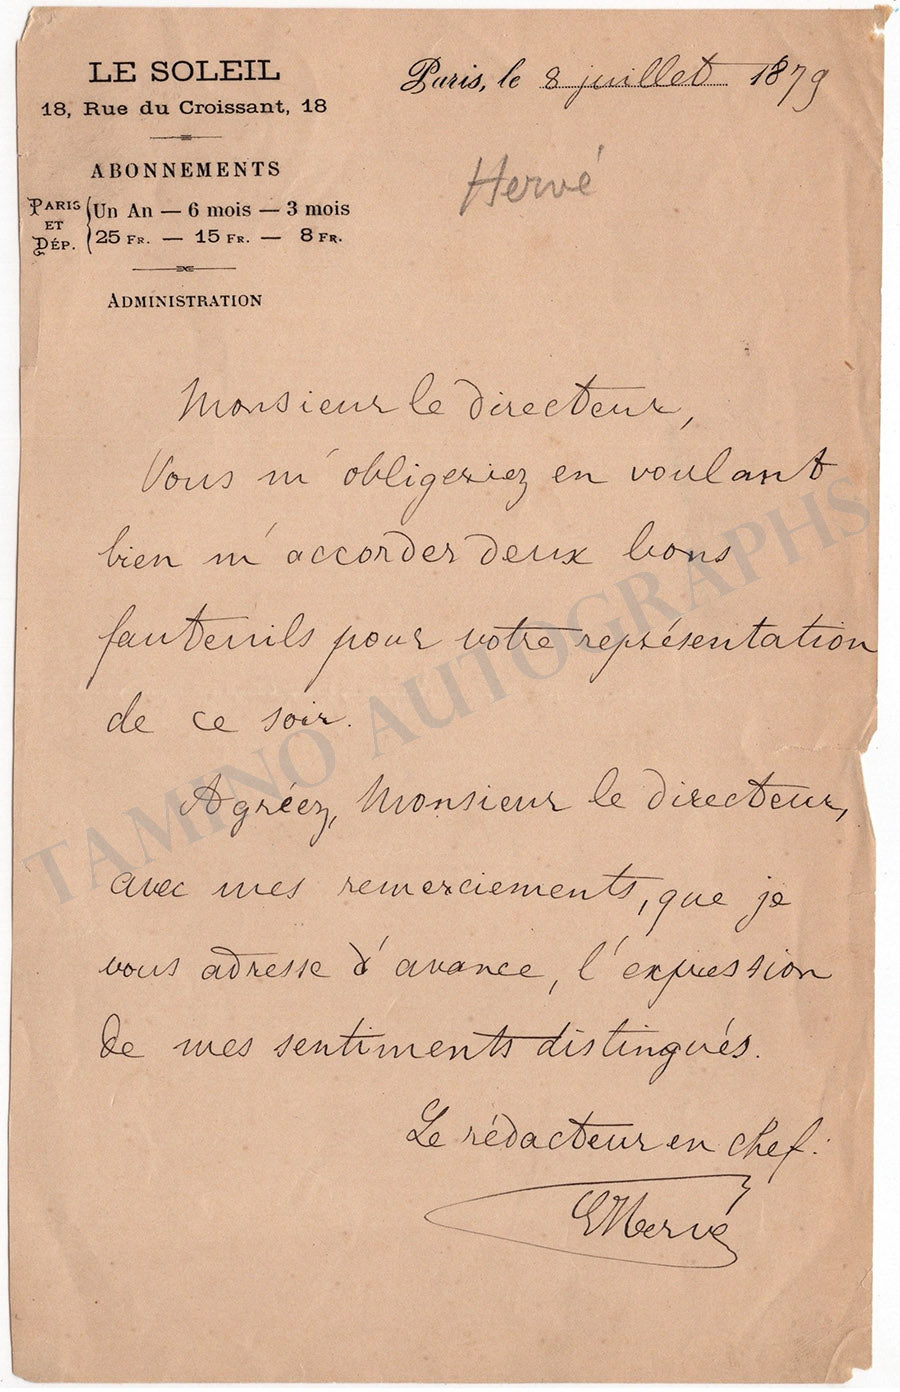 LE SOLEIL
18, Rue du Croissant, 18
ABONNEMENTS
PARIS ET DÉP.
Un An — 6 mois — 3 mois
25 FR. — 15 FR. — 8 FR.
ADMINISTRATION
Paris, le 8 juillet 1879
Hervé
Monsieur le directeur,
Vous m'obligeriez en voulant
bien m'accorder deux bons
fauteuils pour votre représentation
de ce soir.
Agréez, Monsieur le directeur,
avec mes remerciements, que je
vous adresse d'avance, l'expression
de mes sentiments distingués.
Le rédacteur en chef:
EHervé
TAMINO AUTOGRAPHS